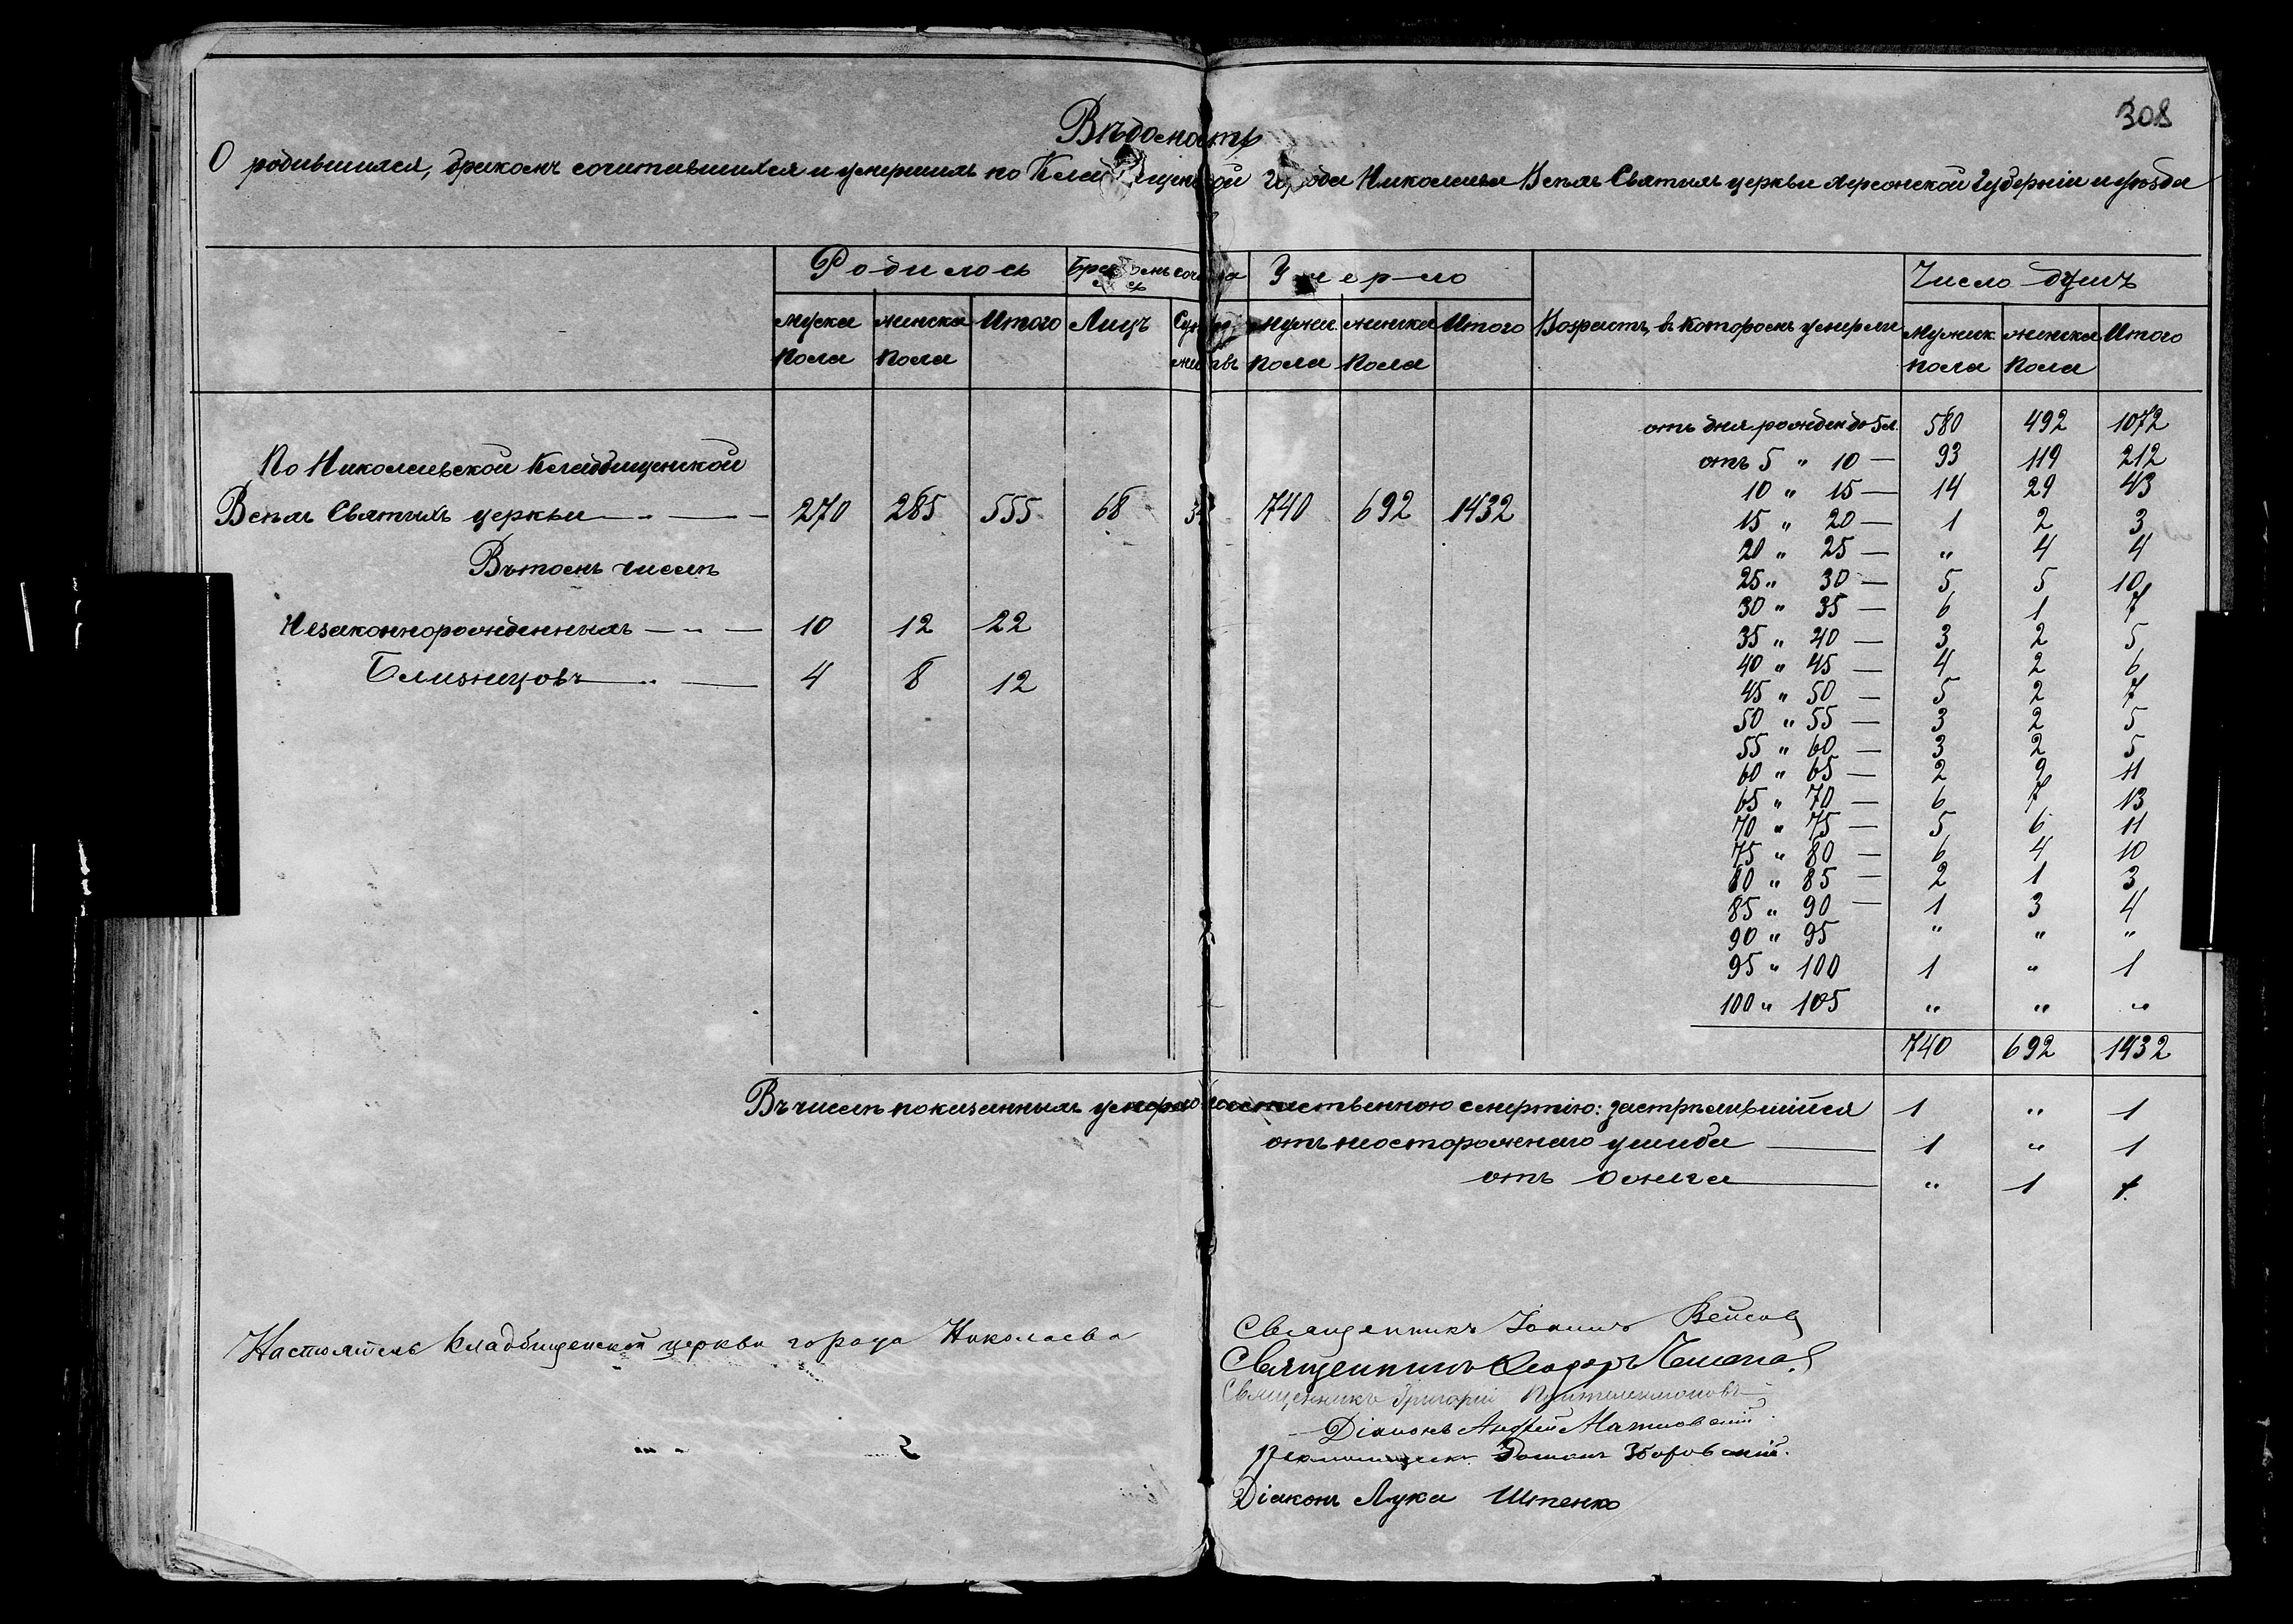 308
Вѣдомость
О родившихся, бракомъ сочитавшихся и умершихъ по Кладбищенской города Николаева Всѣхъ Святыхъ церкви Херсонской Губерніи и уѣзда
Родилось Умерло Число душъ
Мужска пола женска пола Итого Лицъ мужск. пола женска пола Итого Возрастъ, въ которомъ умерли Мужик. пола женска пола Итого
отъ дня рожден до 5 л. 580 492 1072
отъ 5 " 10 — 93 119 212
10 " 15 — 14 29 43
По Николаевской Кладбищенской
Всѣхъ Святыхъ церкви — 270 285 555 68 740 692 1432
15 " 20 — 1 2 3
20 " 25 — " 4 4
Въ томъ числѣ
25 " 30 — 5 5 10
30 " 35 — 6 1 7
Незаконнорожденныхъ — 10 12 22
35 " 40 — 3 2 5
40 " 45 — 4 2 6
Близнецовъ — 4 8 12
45 " 50 — 5 2 7
50 " 55 — 3 2 5
55 " 60 — 3 2 5
60 " 65 — 2 9 11
65 " 70 — 6 7 13
70 " 75 — 5 6 11
75 " 80 — 6 4 10
80 " 85 — 2 1 3
85 " 90 — 1 3 4
90 " 95 " " "
95 " 100 1 " 1
100 " 105 " " "
740 692 1432
Въ числѣ показанныхъ умерло застрѣлившійся 1 " 1
отъ неосторожнаго ушиба — 1 " 1
отъ ожега — " 1 1
Настоятель Кладбищенской церкви города Николаева
Священникъ Іоаннъ
Священникъ Ѳеодоръ
Священникъ Григорій
Діаконъ Андрей
Псаломщикъ Романъ Зборовскій.
Діаконъ Лука